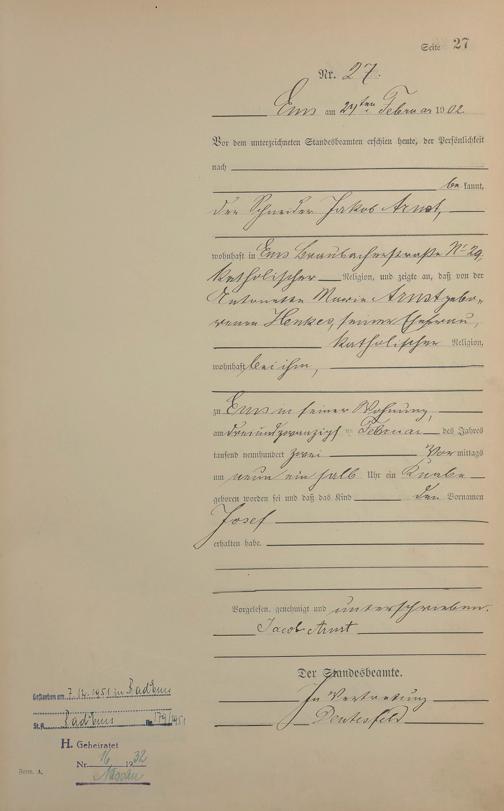 Seite 27
Nr. 27.
Ems am 24ten Februar 1902.
Vor dem unterzeichneten Standesbeamten erschien heute, der Persönlichkeit
nach
bekannt,
der Schneider Jakob Arnst,
wohnhaft in Ems Braubacherstraße No 29,
katholischer Religion, und zeigte an, daß von der
Antonette Marie Arnst gebo-
renen Henkes, seiner Ehefrau,
katholischer Religion,
wohnhaft bei ihm,
zu Ems in seiner Wohnung,
am dreiundzwanzigsten Februar des Jahres
tausend neunhundert zwei Vormittags
um neun ein halb Uhr ein Knabe
geboren worden sei und daß das Kind den Vornamen
Josef
erhalten habe.
Vorgelesen, genehmigt und unterschrieben.
Jacob Arnst
Der Standesbeamte.
In Vertretung
Gestorben am 7.12.1951 in Bad Ems
St.A. Bad Ems No 179/1951
H. Geheiratet
Nr. 16 1932
Nassau
Form. A.